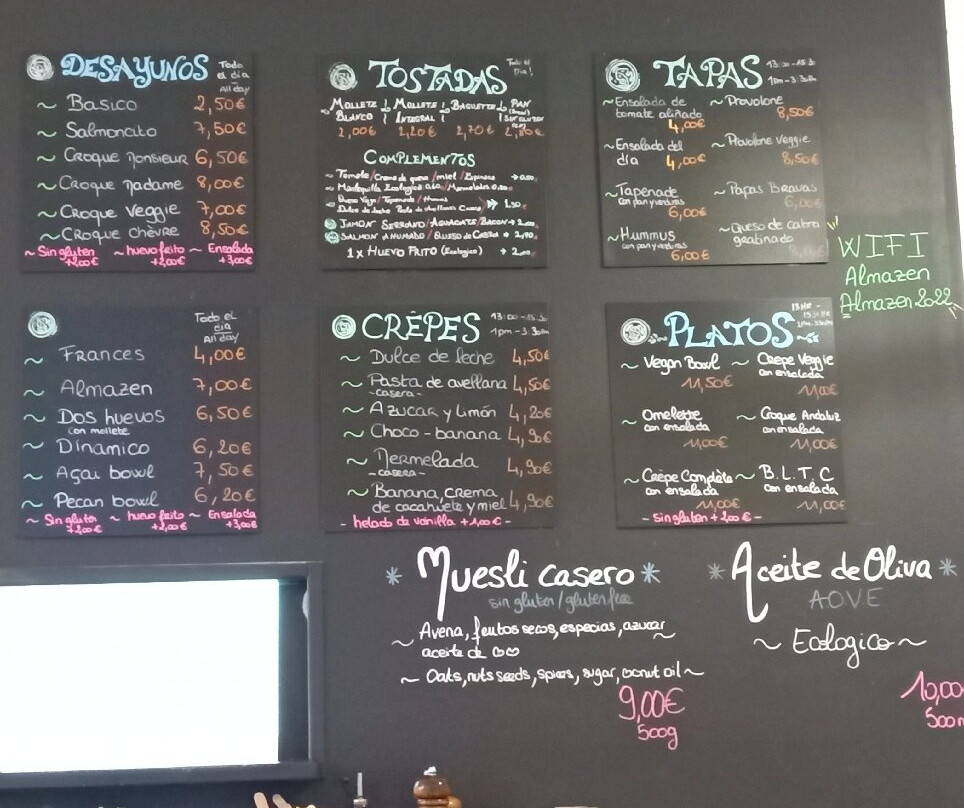 DESAYUNOS
Todo el día
All day
~ Basico 2,50€
~ Salmoncito 7,50€
~ Croque Monsieur 6,50€
~ Croque Madame 8,00€
~ Croque Veggie 7,00€
~ Croque chèvre 8,50€
~ Sin gluten +2,00€ ~ huevo frito +2,00€ ~ Ensalada +3,00€
TOSTADAS
Todo el Día!
MOLLETE BLANCO 2,00€
MOLLETE INTEGRAL 2,20€
BAGUETTE 2,70€
PAN
COMPLEMENTOS
~ Tomate/Crema de queso/miel/Espinaca
~ Mantequilla Ecologica
JAMON SERRANO/AGUACATE/BACON
SALMON AHUMADO/QUESO DE CABRA
1x HUEVO FRITO (Ecologico)
TAPAS
13:00-15:30
1pm-3:30pm
~ Ensalada de tomate aliñado 4,00€
~ Provolone 8,50€
~ Ensalada del día 4,00€
~ Provolone Veggie 8,50€
~ Tapenade con pan y verduras 6,00€
~ Papas Bravas 6,00€
~ Hummus con pan y verduras 6,00€
~ Queso de cabra gratinado
WIFI
Almazen
Almazen2022
Todo el día
All day
~ Frances 4,00€
~ Almazen 7,00€
~ Dos huevos 6,50€
con mollete
~ Dinamico 6,20€
~ Açai bowl 7,50€
~ Pecan bowl 6,20€
~ Sin gluten +2,00€ ~ huevo frito +2,00€ ~ Ensalada +3,00€
CRÊPES
13:00-15:30
1pm-3:30pm
~ Dulce de leche 4,50€
~ Pasta de avellana 4,50€
-casera-
~ Azucar y limón 4,20€
~ Choco-banana 4,90€
~ Mermelada 4,90€
-casera-
~ Banana, crema
de cacahuete y miel 4,90€
- helado de vainilla +1,00€ -
PLATOS
~ Vegan Bowl 11,50€
~ Crêpe Veggie con ensalada 11,00€
~ Omelette con ensalada 11,00€
~ Croque Andaluz con ensalada 11,00€
~ Crêpe Complète con ensalada 11,00€
~ B.L.T.C con ensalada 11,00€
- sin gluten + 2,00€ -
* Muesli casero *
sin gluten/gluten free
~ Avena, frutos secos, especias, azucar
aceite de coco ~
~ Oats, nuts seeds, spices, sugar, coconut oil ~
9,00€
500g
* Aceite de Oliva *
A.O.V.E
~ Ecologico ~
10,00
500m